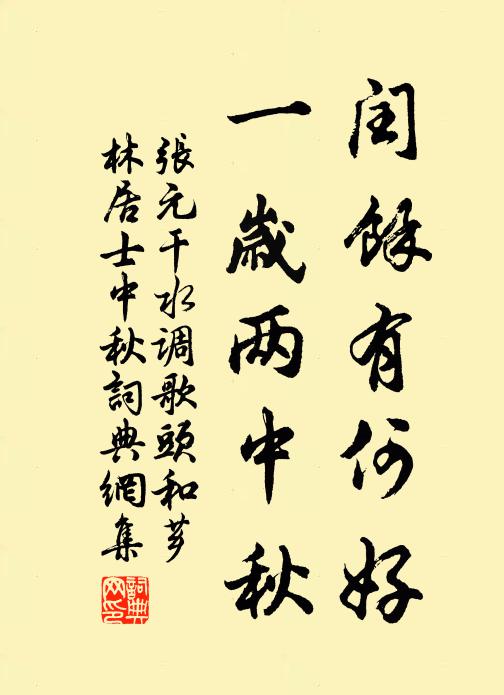 閏餘有何好
一歲两中秋
張元干水調歌頭和薌
林居士中秋詞典網集
詞典
网印